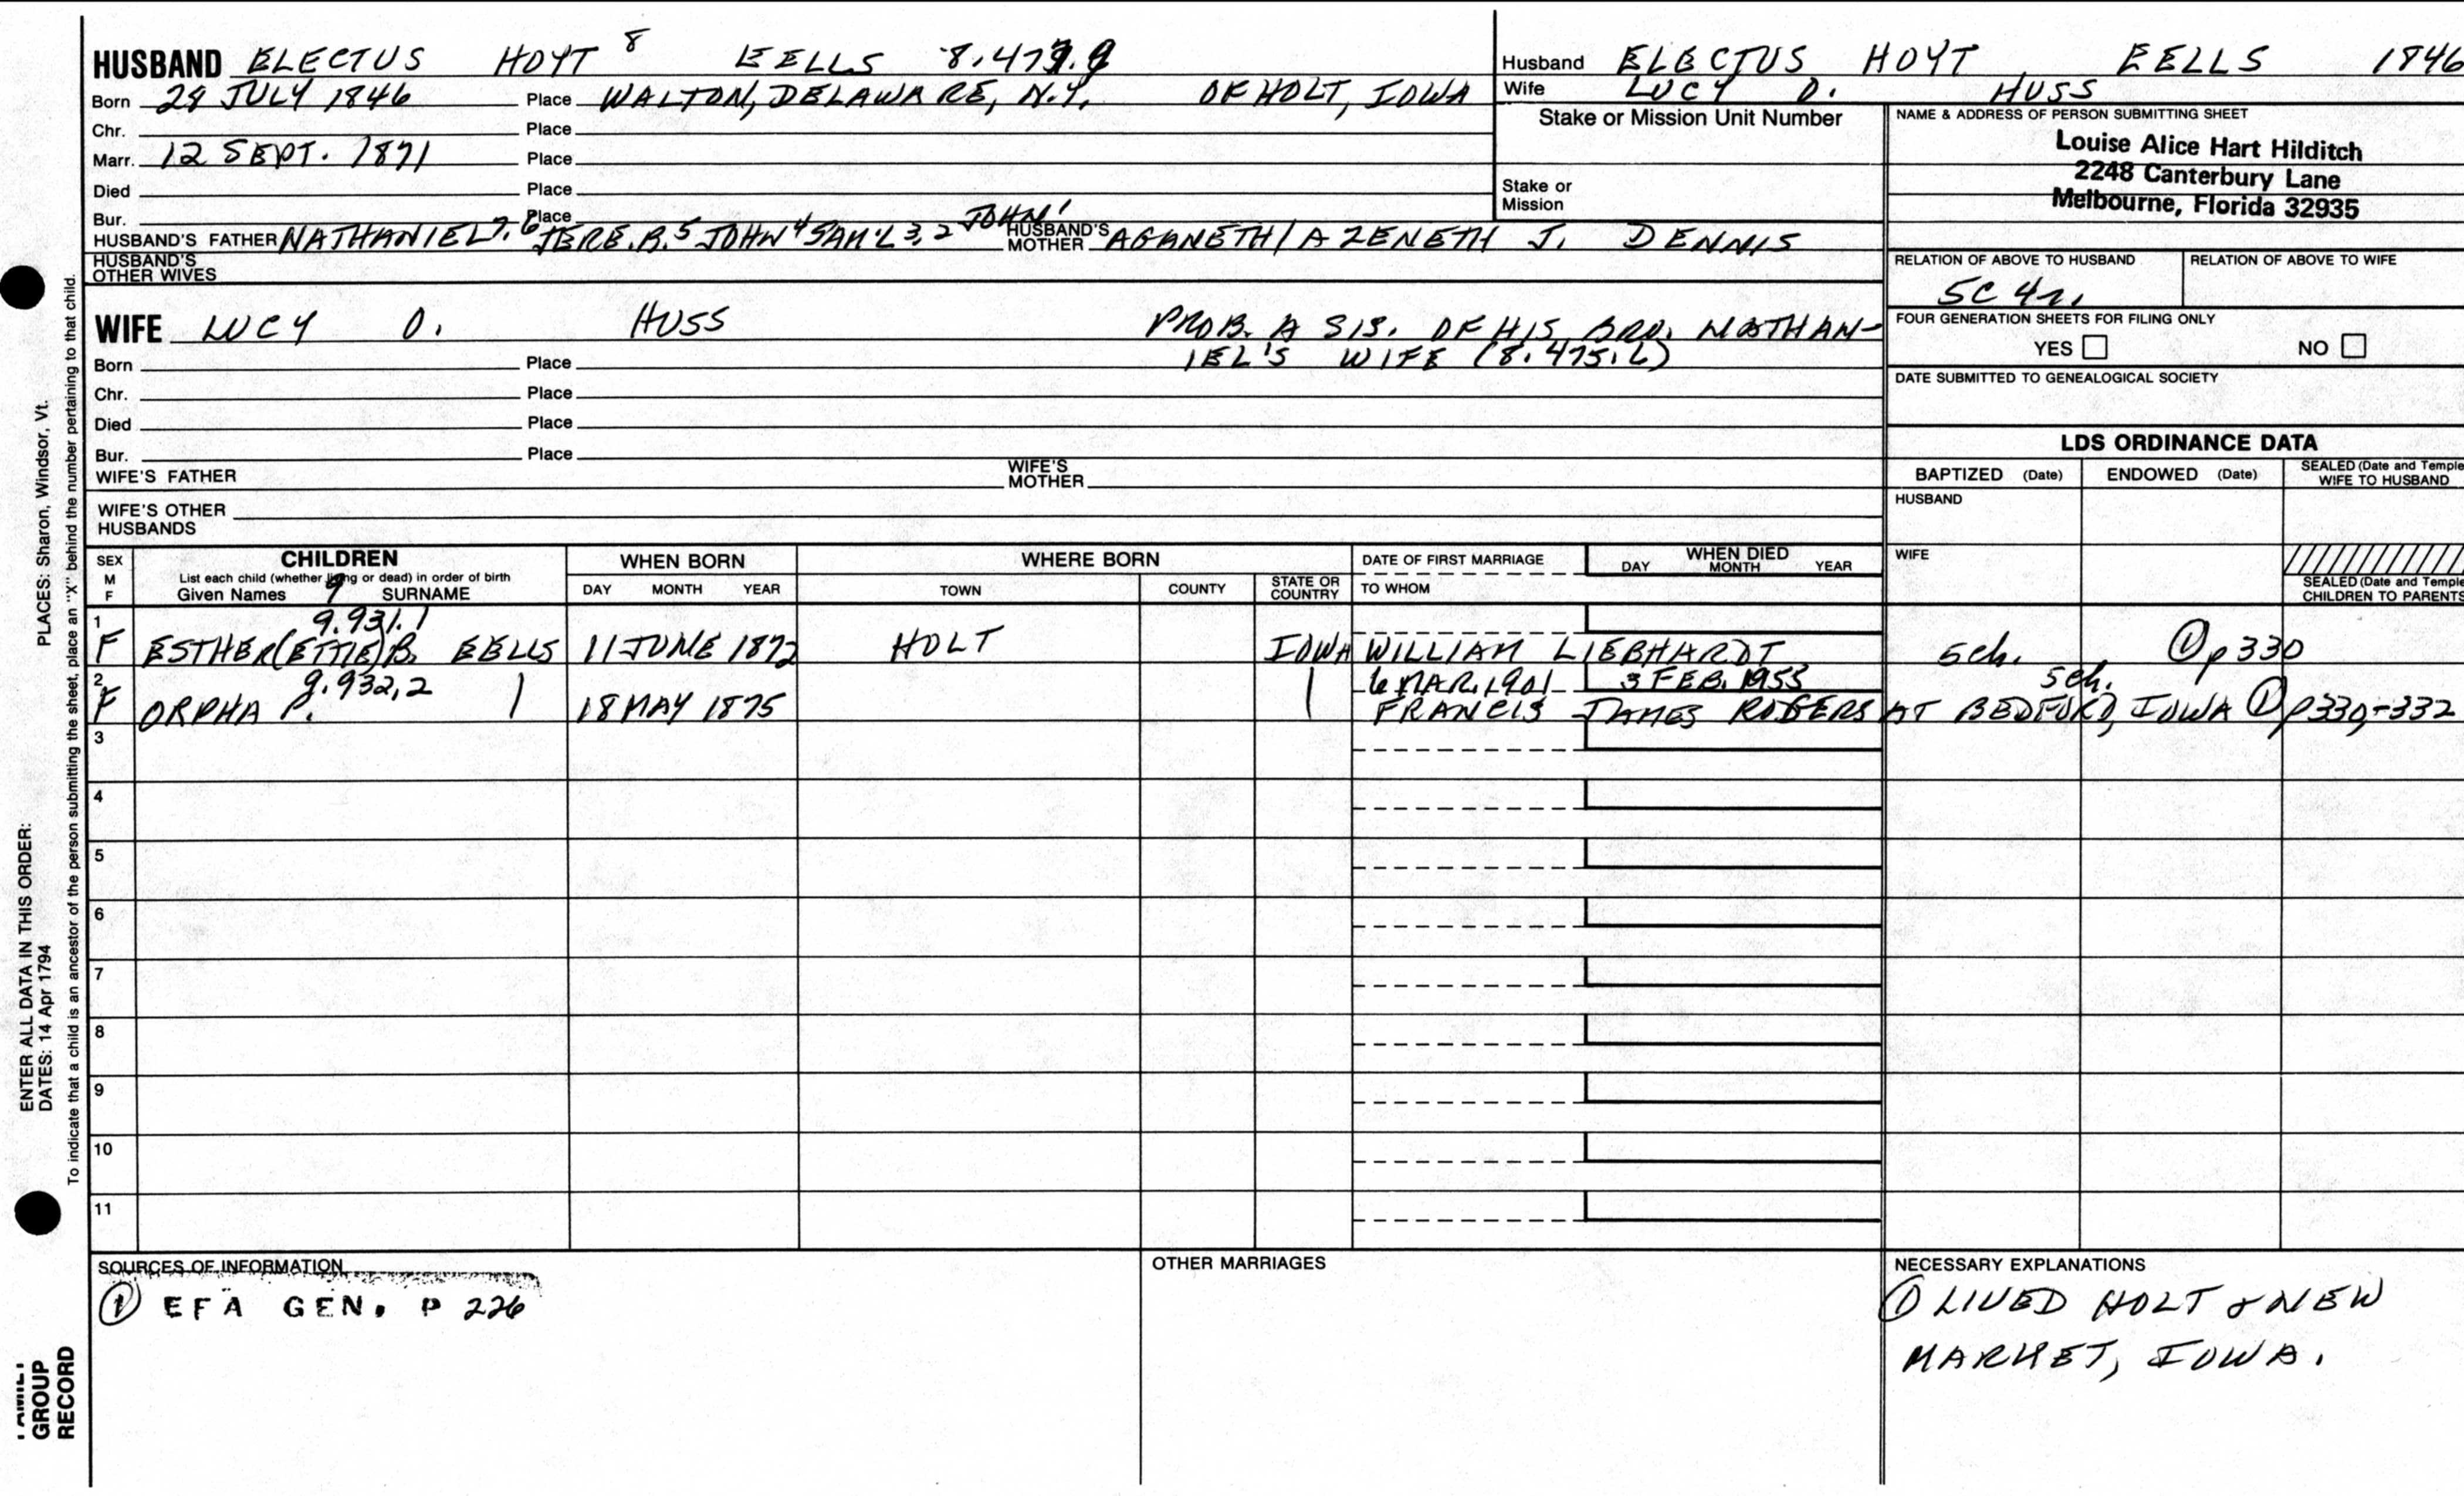 HUSBAND ELECTUS HOYT 8 EELLS
Born JULY 1846 Place WALTON, DELAWARE, N.Y. OF HOLT, IOWA
Chr. Place
Marr. 12 SEPT. 1871 Place
Died Place
Bur. Place
HUSBAND'S FATHER NATHANIEL 7. 6 JERE. B. 5 JOHN 4 SAM'L 3, 2 JOHN 1 HUSBAND'S MOTHER AGANETH/AZENETH J. DENNIS
HUSBAND'S OTHER WIVES
WIFE LUCY O. HUSS PROB. A SIS. OF HIS BRO. NATHAN-
IEL'S WIFE (8.475.6)
Born Place
Chr. Place
Died Place
Bur. Place
WIFE'S FATHER WIFE'S MOTHER
WIFE'S OTHER HUSBANDS
Husband ELECTUS HOYT EELLS 1846
Wife LUCY O. HUSS
Stake or Mission Unit Number
Stake or
Mission
NAME & ADDRESS OF PERSON SUBMITTING SHEET
Louise Alice Hart Hilditch
2248 Canterbury Lane
Melbourne, Florida 32935
RELATION OF ABOVE TO HUSBAND RELATION OF ABOVE TO WIFE
5C 4r.
FOUR GENERATION SHEETS FOR FILING ONLY
YES NO
DATE SUBMITTED TO GENEALOGICAL SOCIETY
LDS ORDINANCE DATA
BAPTIZED (Date) ENDOWED (Date) SEALED (Date and Temple
WIFE TO HUSBAND
HUSBAND
WIFE
SEALED (Date and Temple
CHILDREN TO PARENTS
SEX
M
F
CHILDREN
List each child (whether living or dead) in order of birth
Given Names 9 SURNAME
WHEN BORN
DAY MONTH YEAR
WHERE BORN
TOWN COUNTY STATE OR COUNTRY
DATE OF FIRST MARRIAGE
TO WHOM
WHEN DIED
DAY MONTH YEAR
1 9.931.1
F ESTHER (ETTIE) B. EELLS 11 JUNE 1872 HOLT IOWA WILLIAM LIEBHARDT sch. ① p330
2 9.932.2 6 MAR. 1901 3 FEB. 1953 sch.
F ORPHA P. 18 MAY 1875 FRANCIS JAMES ROGERS AT BEDFORD, IOWA ① p330,-332
3
4
5
6
7
8
9
10
11
SOURCES OF INFORMATION
① EFA GEN. P 226
OTHER MARRIAGES
NECESSARY EXPLANATIONS
① LIVED HOLT & NEW
MARKET, IOWA.
ENTER ALL DATA IN THIS ORDER:
DATES: 14 Apr 1794 PLACES: Sharon, Windsor, Vt.
To indicate that a child is an ancestor of the person submitting the sheet, place an "X" behind the number pertaining to that child.
GROUP
RECORD